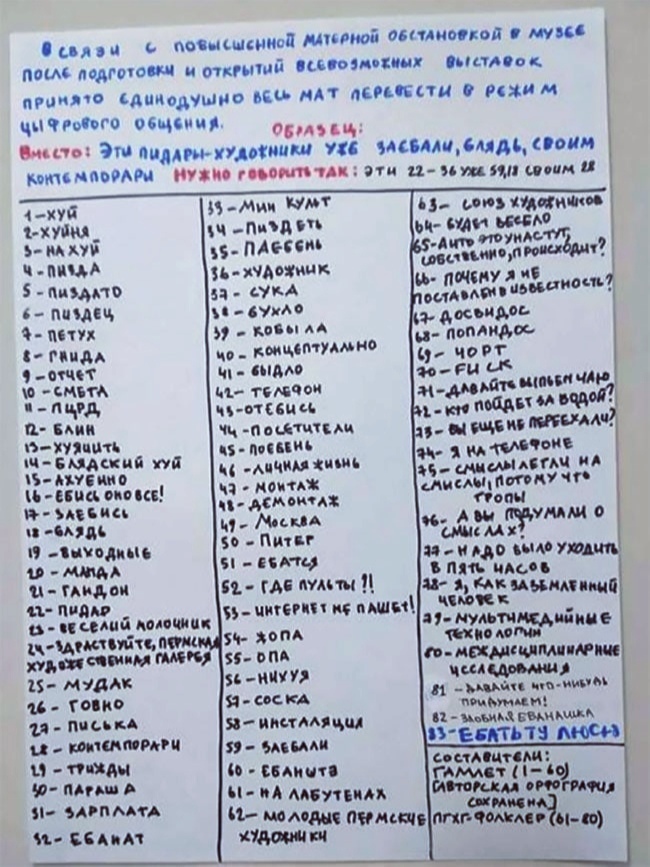 В СВЯЗИ С ПОВЫСШЕННОЙ МАТЕРНОЙ ОБСТАНОВКОЙ В МУЗЕЕ
ПОСЛЕ ПОДГОТОВКИ И ОТКРЫТИЙ ВСЕВОЗМОЖНЫХ ВЫСТАВОК
ПРИНЯТО ЕДИНОДУШНО ВЕСЬ МАТ ПЕРЕВЕСТИ В РЕЖИМ
ЦЫФРОВОГО ОБЩЕНИЯ. ОБРАЗЕЦ:
ВМЕСТО: ЭТИ ПИДАРЫ-ХУДОЖНИКИ УЖЕ ЗАЕБАЛИ, БЛЯДЬ, СВОИМ
КОНТЕМПОРАРИ НУЖНО ГОВОРИТЬ ТАК: ЭТИ 22-36 УЖЕ 59,18 СВОИМ 28
1-ХУЙ
2-ХУЙНЯ
3-НАХУЙ
4-ПИЗДА
5-ПИЗДАТО
6-ПИЗДЕЦ
7-ПЕТУХ
8-ГНИДА
9-ОТЧЕТ
10-СМЕТА
11-ПЦРД
12-БЛИН
13-ХУЯЦИТЬ
14-БЛЯДСКИЙ ХУЙ
15-АХУЕННО
16-ЕБИСЬ ОНО ВСЕ!
17-ЗАЕБИСЬ
18-БЛЯДЬ
19-ВЫХОДНЫЕ
20-МАНДА
21-ГАНДОН
22-ПИДАР
23-ВЕСЕЛИЙ МОЛОЧНИК
24-ЗДРАСТВУЙТЕ, ПЕРМСКАЯ
ХУДОЖЕСТВЕННАЯ ГАЛЕРЕЯ
25-МУДАК
26-ГОВНО
27-ПИСЬКА
28-КОНТЕМПОРАРИ
29-ТРИЖДЫ
30-ПАРАША
31-ЗАРПЛАТА
32-ЕБАНАТ
33-МИН КУЛЬТ
34-ПИЗДЕТЬ
35-ПАЕБЕНЬ
36-ХУДОЖНИК
37-СУКА
38-БУХЛО
39-КОБЫЛА
40-КОНЦЕПТУАЛЬНО
41-БЫДЛО
42-ТЕЛЕФОН
43-ОТЕБИСЬ
44-ПОСЕТИТЕЛИ
45-ПОЕБЕНЬ
46-ЛИЧНАЯ ЖИЗНЬ
47-МОНТАЖ
48-ДЕМОНТАЖ
49-МОСКВА
50-ПИТЕР
51-ЕБАТСЯ
52-ГДЕ ПУЛЬТЫ?!
53-ИНТЕРНЕТ НЕ ПАШЕТ!
54-ЖОПА
55-ОПА
56-НИХУЯ
57-СОСКА
58-ИНСТАЛЯЦИЯ
59-ЗАЕБАЛИ
60-ЕБАНЫТА
61-НА ЛАБУТЕНАХ
62-МОЛОДЫЕ ПЕРМСКИЕ
ХУДОЖНИКИ
63-СОЮЗ ХУДОЖНИКОВ
64-БУДЕТ ВЕСЕЛО
65-А ЧТО ЭТО У НАС ТУТ,
СОБСТВЕННО, ПРОИСХОДИТ?
66-ПОЧЕМУ Я НЕ
ПОСТАВЛЕН В ИЗВЕСТНОСТЬ?
67-ДОСВИДОС
68-ПОПАНДОС
69-ЧОРТ
70-FUCK
71-ДАВАЙТЕ ВЫПЬЕМ ЧАЮ
72-КТО ПОЙДЕТ ЗА ВОДОЙ?
73-ВЫ ЕЩЕ НЕ ПЕРЕЕХАЛИ?
74-Я НА ТЕЛЕФОНЕ
75-СМЫСЛЫ ЛЕГЛИ НА
СМЫСЛЫ, ПОТОМУ ЧТО
ТРОПЫ
76-А ВЫ ПОДУМАЛИ О
СМЫСЛАХ?
77-НАДО БЫЛО УХОДИТЬ
В ПЯТЬ ЧАСОВ
78-Я, КАК ЗАЗЕМЛЕННЫЙ
ЧЕЛОВЕК
79-МУЛЬТИМЕДИЙНЫЕ
ТЕХНОЛОГИИ
80-МЕЖДИСЦИПЛИНАРНЫЕ
ИССЛЕДОВАНИЯ
81-ДАВАЙТЕ ЧТО-НИБУДЬ
ПРИДУМАЕМ!
82-ЗЛОБНАЯ ЕБАНАШКА
83-ЕБАТЬ ТУ ЛЮСЮ
СОСТАВИТЕЛИ:
ГАМЛЕТ (1-60)
[АВТОРСКАЯ ОРФОГРАФИЯ
СОХРАНЕНА]
ПГХГ-ФОЛКЛЕР (61-80)